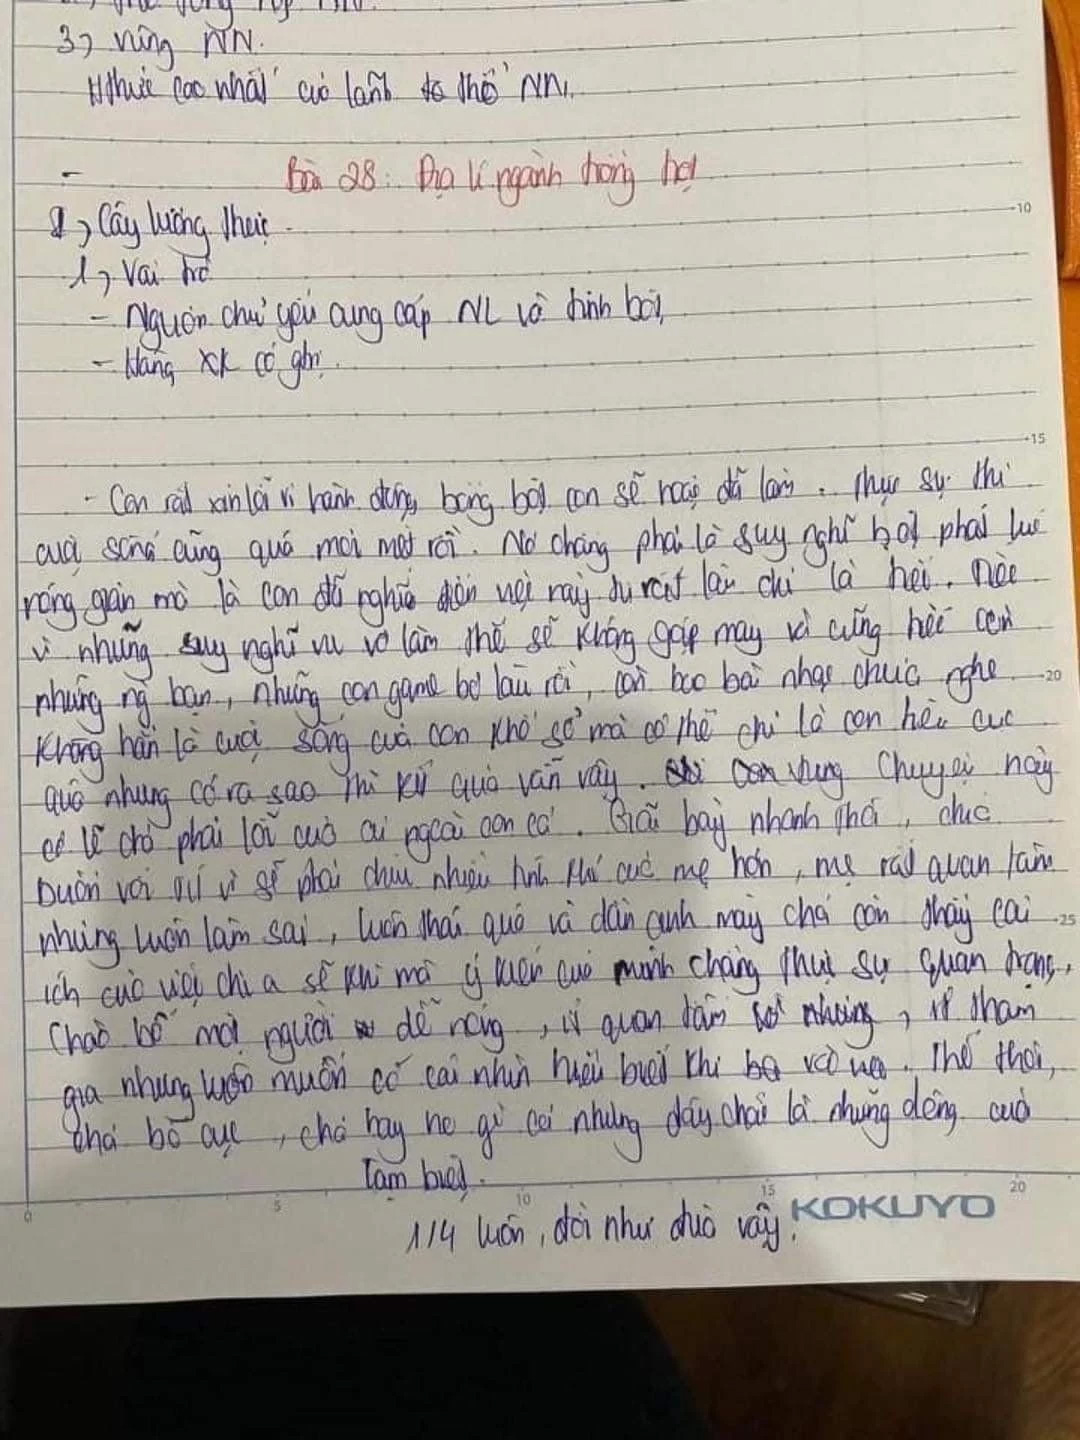 3) vùng NN.
Hthức cao nhất của lãnh thổ NN.
- Bài 28: Địa lí ngành trồng trọt
I) Cây lương thực
1) Vai trò
- Nguồn chủ yếu cung cấp NL và tinh bột,
- Hàng XK có gtrị.
- Con rất xin lỗi vì hành động bồng bột con sẽ hoặc đã làm. Thực sự thì
cuộc sống cũng quá mỏi mệt rồi. Nó chẳng phải là suy nghĩ bột phát lúc
nóng giận mà là con đã nghĩ đến việc này rất lần chỉ là hèn.
vì những suy nghĩ vu vơ làm thế sẽ không gặp may và cũng hèn
những ng bạn, những con game bỏ lâu rồi, còn bao bài nhạc chưa nghe
Không hẳn là cuộc sống của con khổ sở mà có thể chỉ là con tiêu cực
quá nhưng có ra sao thì kết quả vẫn vậy. Con chuyện này
có lẽ chả phải lỗi của ai ngoài con cả. Giãi bày nhanh thôi, chúc
buồn với vì sẽ phải chịu nhiều tính khí của mẹ hơn, mẹ rất quan tâm
nhưng luôn làm sai, luôn thái quá và dần anh mày chả còn thấy cái
ích của việc chia sẻ khi mà ý kiến của mình chẳng thực sự quan trọng,
Chào bố mọi người dễ nóng, ít quan tâm nhưng, ít tham
gia nhưng luôn muốn có cái nhìn hiểu biết khi Thế thôi,
chả bố cục, chả hay ho gì cả nhưng đấy chắc là những dòng cuối
Tạm biệt.
1/4 luôn, đời như đùa vậy.
KOKUYO
10
15
20
25
0
5
10
15
20